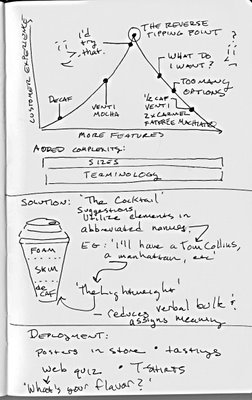 THE REVERSE
TIPPING POINT?
i'd
try
that.
CUSTOMER EXPERIENCE
WHAT DO
I WANT?
TOO MANY
OPTIONS
DECAF
VENTI
MOCHA
1/2 CAF
VENTI
2x CARMEL
MACHIATO
MORE FEATURES
ADDED COMPLEXITY:
SIZES
TERMINOLOGY
SOLUTION: "The Cocktail"
Suggestions
Utilize elements in
abbreviated names,
EG: "I'll have a Tom Collins,
a manhattan, etc"
FOAM
SKIM
DECAF
"The Lightweight"
- reduces verbal bulk &
assigns meaning
DEPLOYMENT:
Posters in store • tastings
web quiz • T-SHIRTS
"What's your flavor?"